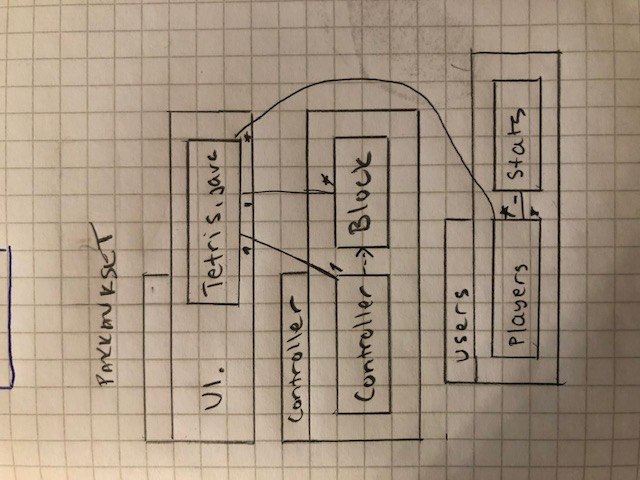 PAKKAUKSET
UI.
Tetris.java
1
1
*
Controller
1
*
Controller
Block
users
Players
*
Stats